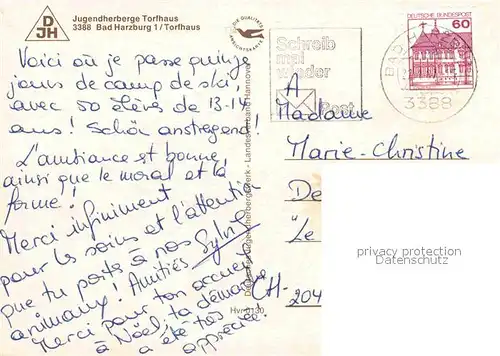 Jugendherberge Torfhaus
3388 Bad Harzburg 1/Torfhaus
DJH
Voici où je passe quinze
jours de camp de ski,
avec 50 élèves de 13-14
ans! Schön anstregend!
L'ambiance est bonne,
ainsi que le moral et la
forme!
Merci infiniment
pour les soins et l'attention
que tu porte à nos
animaux! Amitiés Sylvie
Merci pour ton accueil
à Noël; ta démarche
a été très
appréciée!
Deutsches Jugendherbergswerk - Landesverband Hannover
Hvr 0130
Schreib
mal
wieder
Post
DEUTSCHE BUNDESPOST
60
BAD HARZBURG
3388
A
Madame
Marie-Christine
De
"Le
CH-204
privacy protection
Datenschutz